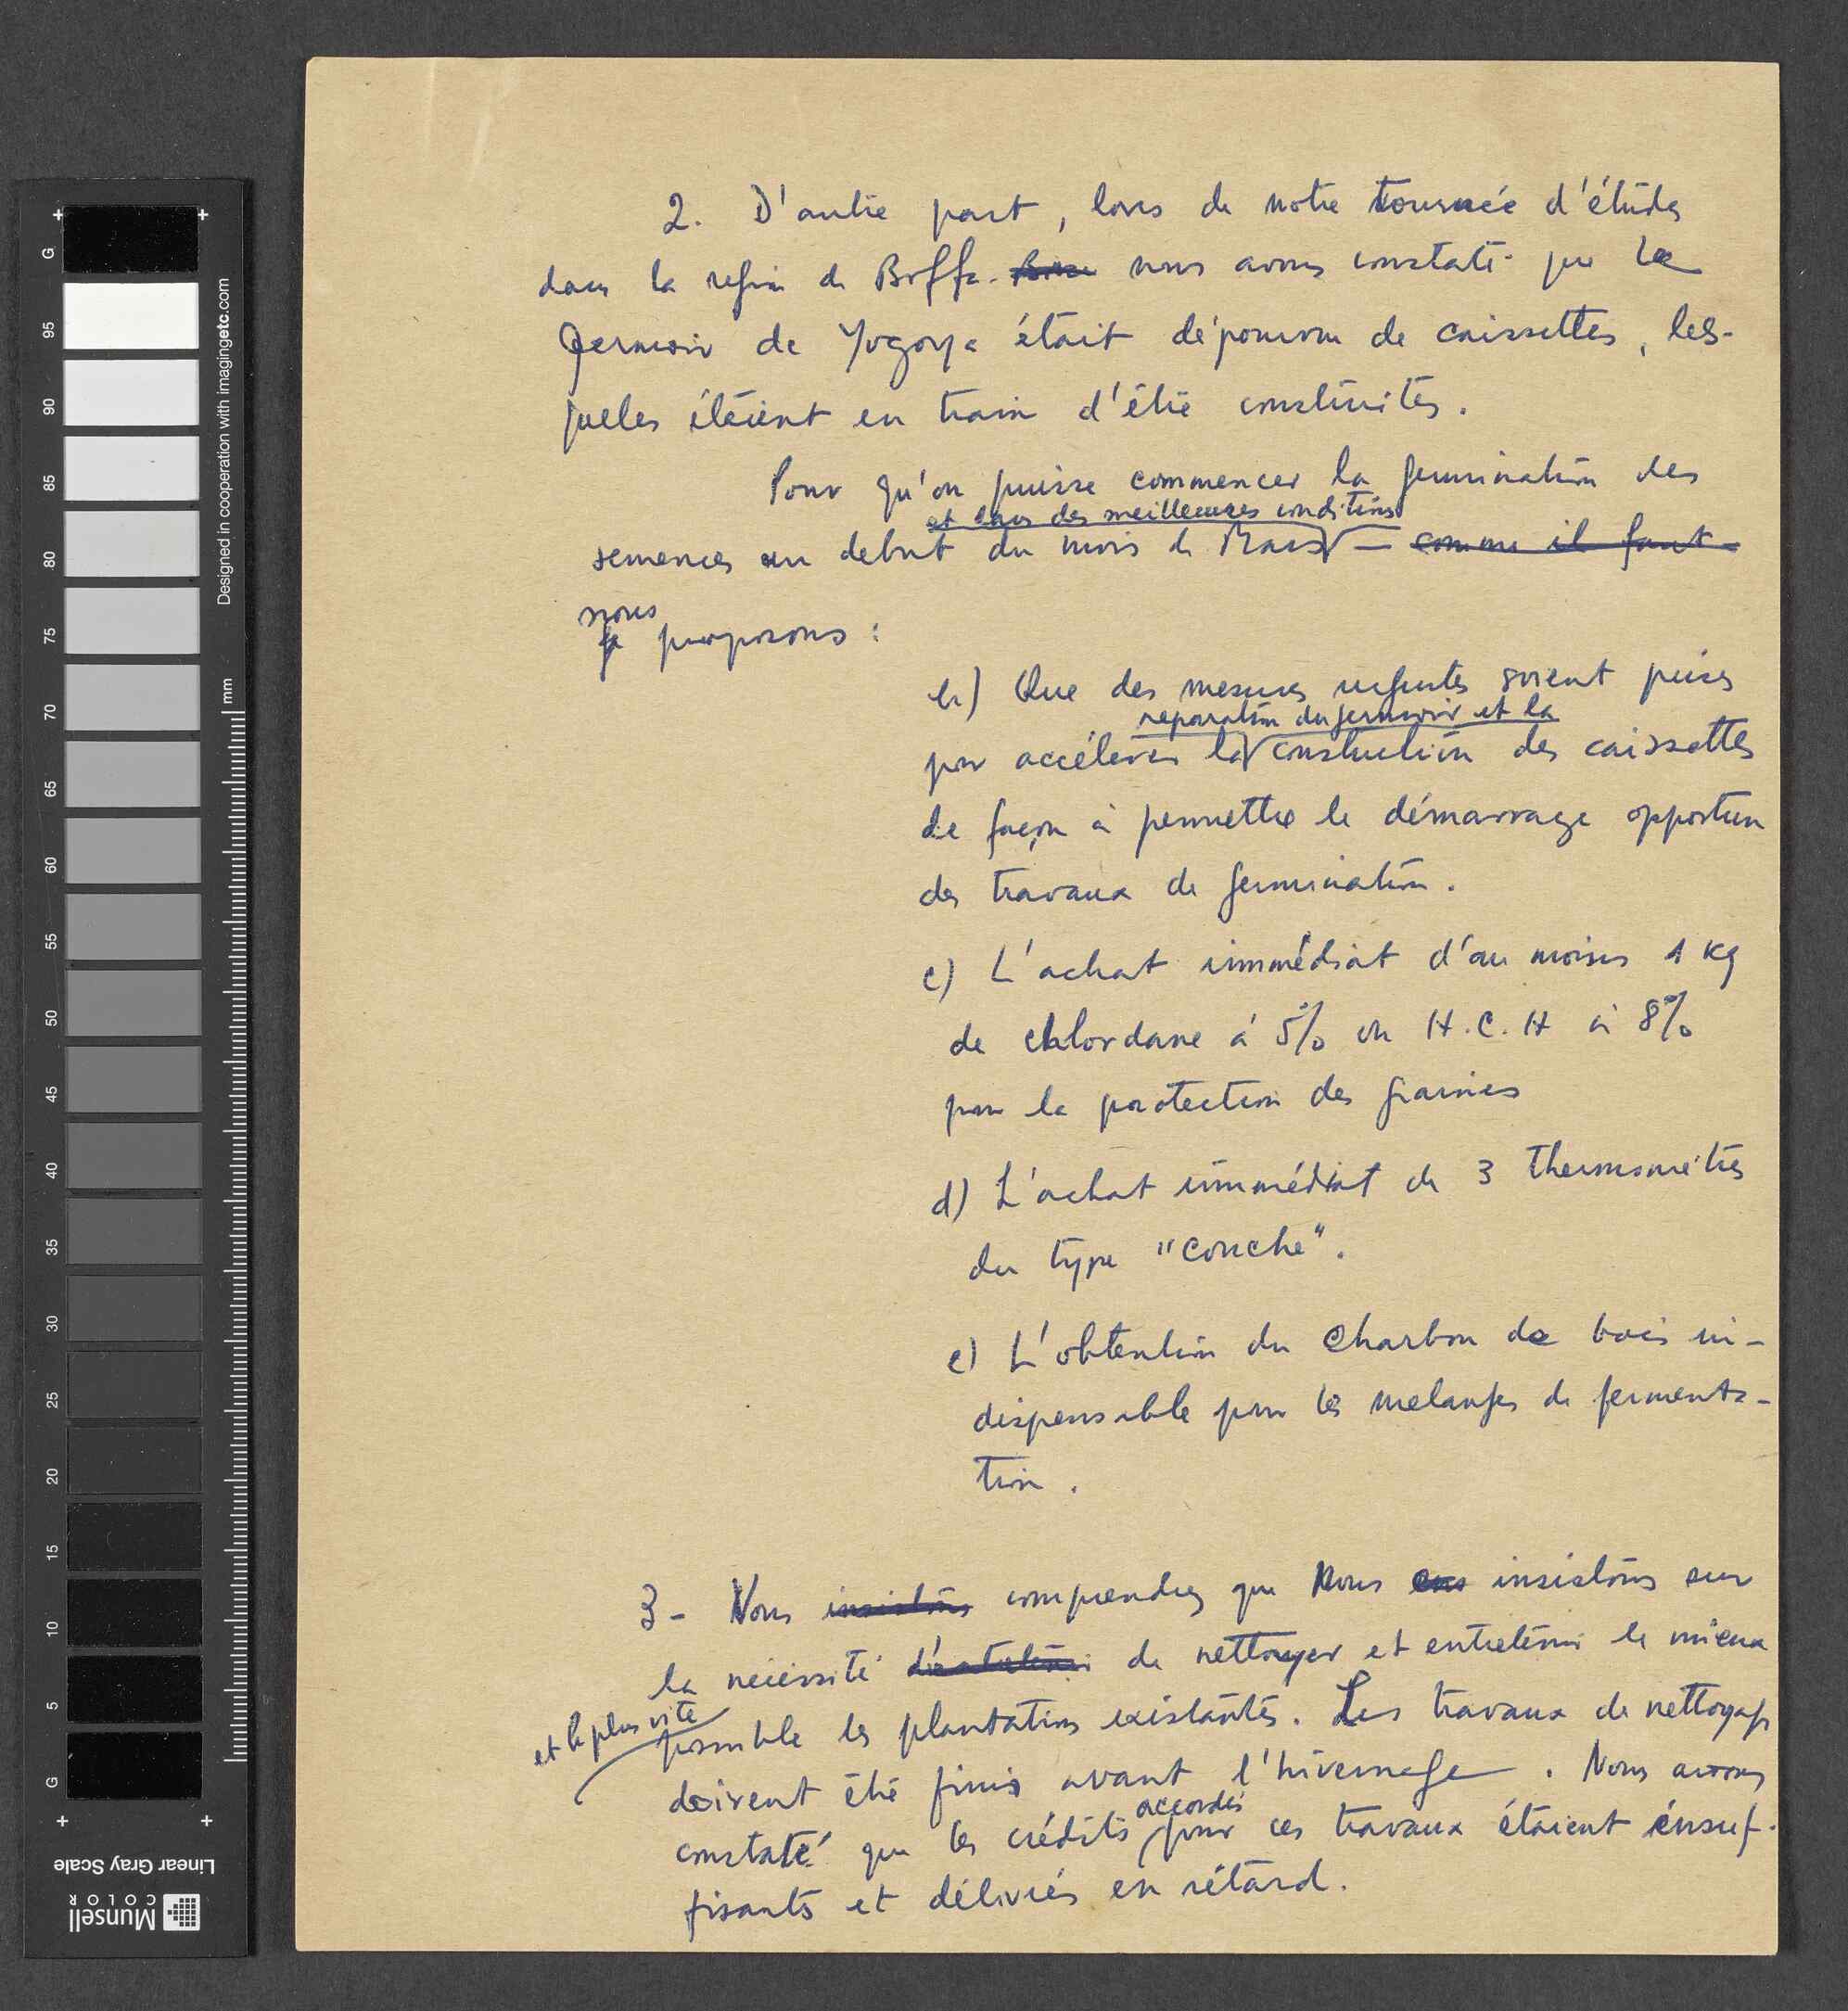 2. D'autre part, lors de notre tournée d'études
dans la region de Boffa nous avons constaté que le
germoir de Yogoya était dépourvu de caissettes, les-
quelles étaient en train d'être construites.
Pour qu'on puisse commencer la germination des
et dans des meilleures conditions
semences au debut du mois de Mars — comme il faut -
nous
proposons :
b) Que des mesures urgentes soient prises
reparation du germoir et la
pour accélérer la construction des caissettes
de façon à permettre le démarrage opportun
des travaux de germination.
c) L'achat immédiat d'au moins 1 Kg
de chlordane à 5% ou H.C.H à 8%
pour la protection des graines
d) L'achat immédiat de 3 thermomètres
du type "couche".
e) L'obtention du charbon de bois in-
dispensable pour les melanges de fermenta-
tion.
3- Vous insistons comprendrez que nous insistons sur
la nécessité d'entretenir de nettoyer et entretenir le mieux
et le plus vite
possible les plantations existantes. Les travaux de nettoyage
doivent être finis avant l'hivernage. Nous avons
accordés
constaté que les crédits pour ces travaux étaient insuf-
fisants et délivrés en rétard.
G
95
90
85
80
75
70
65
60
55
50
45
40
35
30
25
20
15
10
5
G
mm
Designed in cooperation with imagingetc.com
Linear Gray Scale
Munsell
COLOR